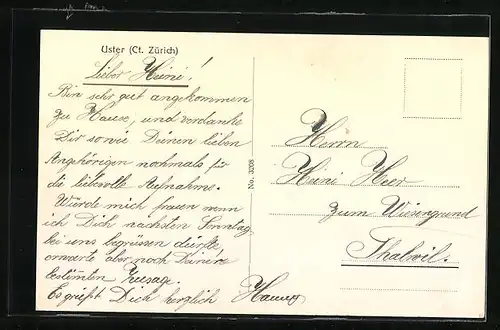 Uster (Ct. Zürich)
Lieber Heini!
Bin sehr gut angekommen
zu Hause, und verdanke
Dir so wie Deinen lieben
Angehörigen nochmals für
die liebevolle Aufnahme.
Würde mich freuen wenn
ich Dich nächsten Sonntag
bei uns begrüssen dürfte
erwarte aber noch Deine
bestimten Zusage.
Es grüßt Dich herzlich
No. 3208
Herrn
Heini Heer
zum Wiesengrund
Thalwil.